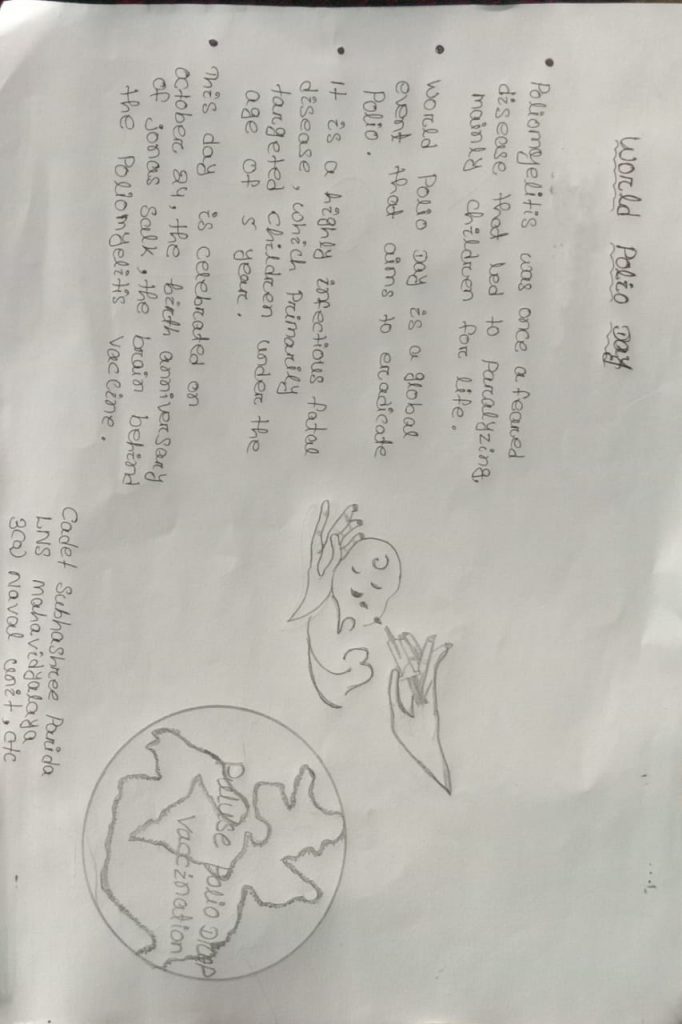 World Polio Day
• Poliomyelitis was once a feared
disease that led to paralyzing,
mainly children for life.
• World Polio Day is a global
event that aims to eradicate
Polio.
• It is a highly infectious fatal
disease, which primarily
targeted children under the
age of 5 year.
• This day is celebrated on
October 24, the birth anniversary
of Jonas Salk, the brain behind
the Poliomyelitis vaccine.
Pulse Polio Drop
Vaccination
Cadet Subhashree Parida
LNS mahavidyalaya
3(O) Naval unit, ctc